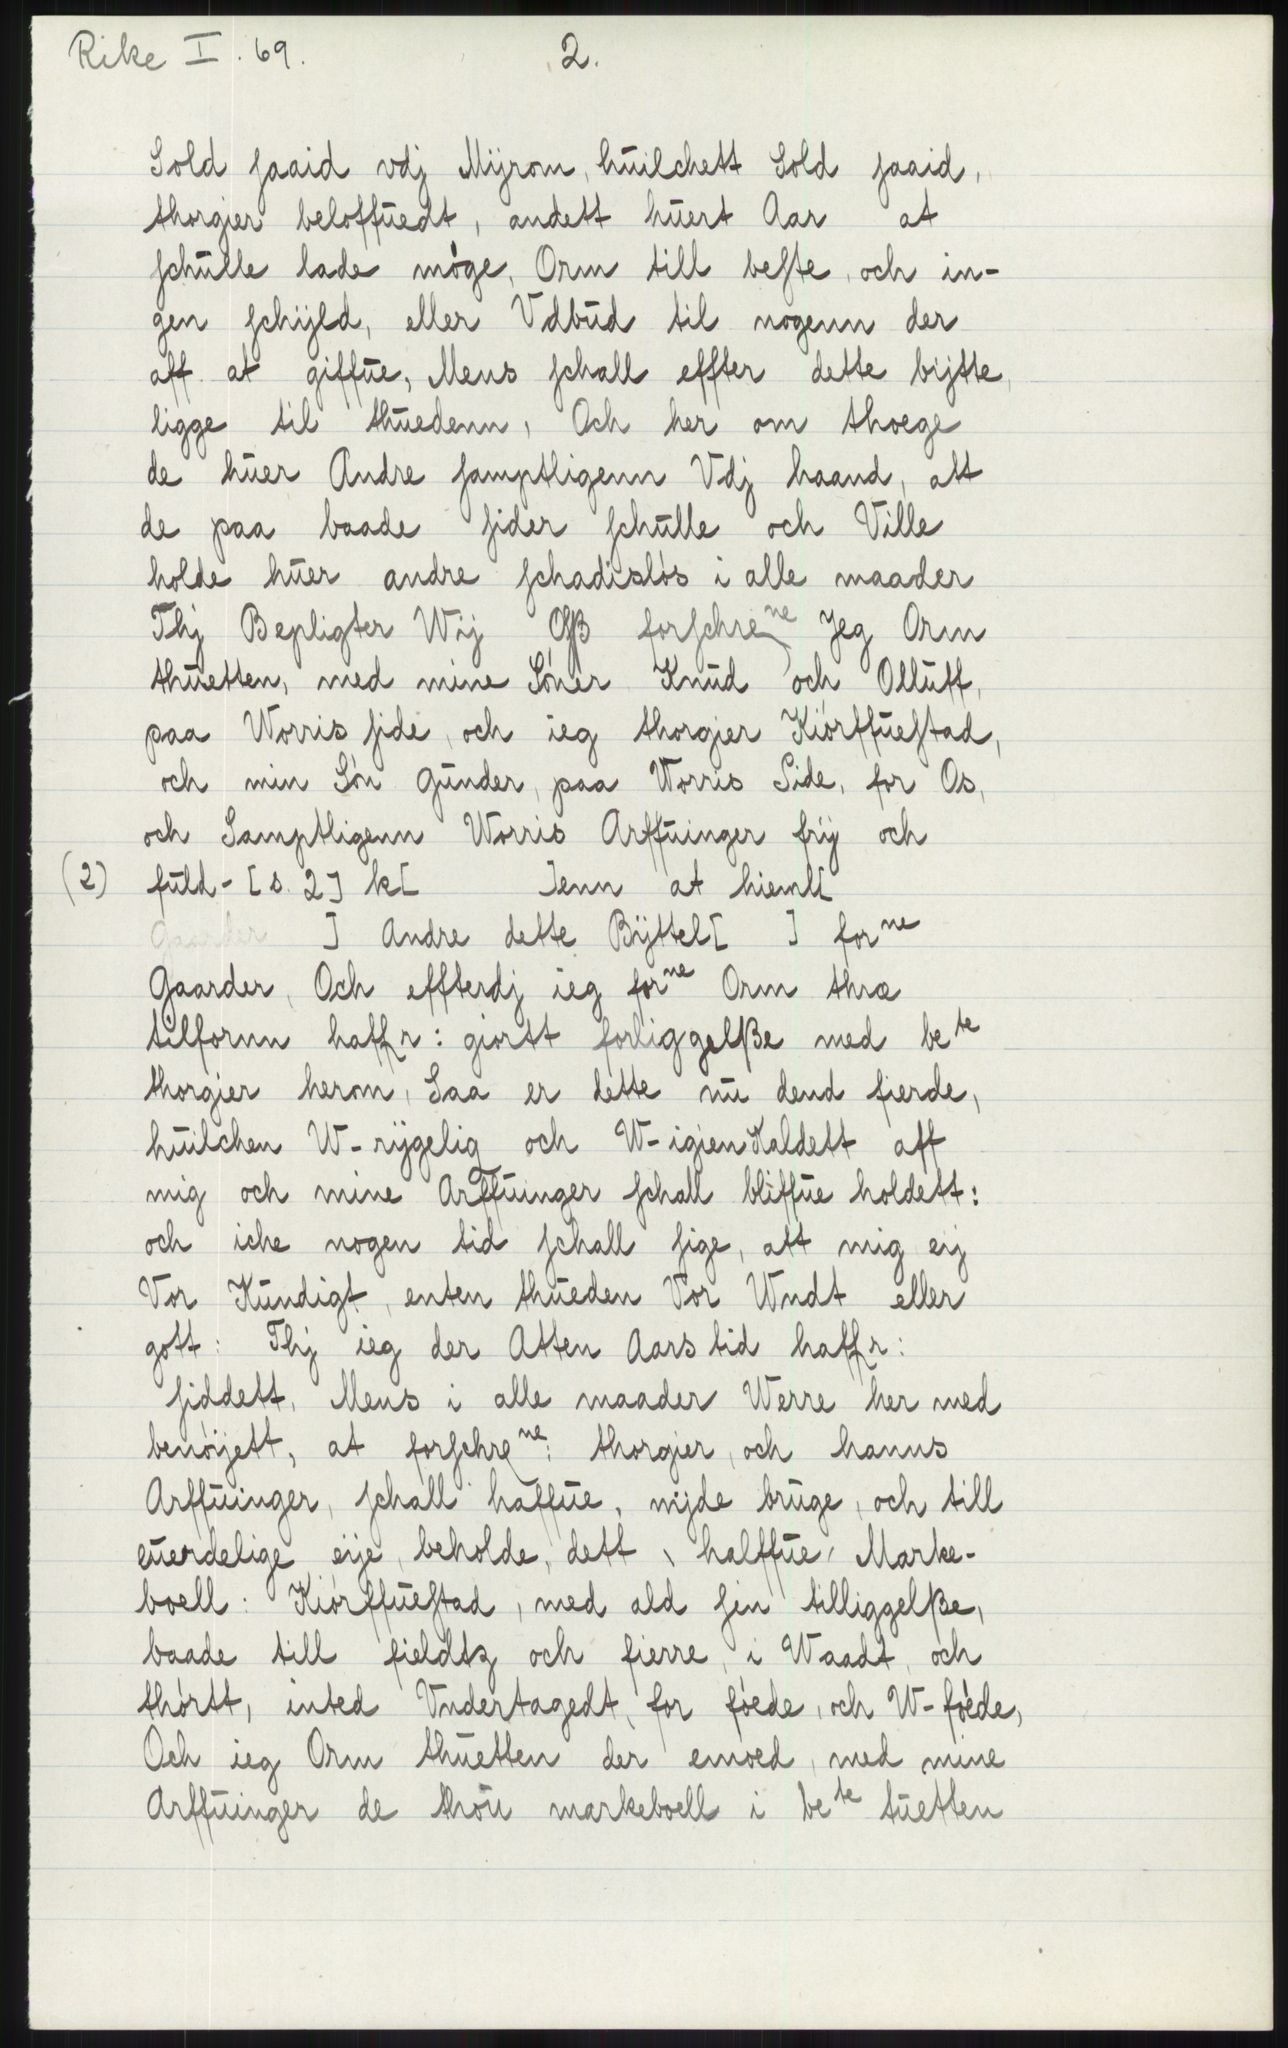 Rike I. 69. 2.
Sold saaid vdj Mijrom, huilchett Sold saaid,
thorgier beloffuedt, andett huert Aar at
schulle lade möge, Orm till beste, och in-
gen schijld, eller Vdbud til nogenn der
aff at giffue, Mens schall effter dette bijtte,
ligge til thuedenn, Och her om thoege
de huer Andre samptligenn Vdj haand, att
de paa baade sider schulle och Ville
holde huer andre schadisløs i alle maader
Thj Bepligter Wij Oß forschrene Jeg Orm
thuetten, med mine Sønner Knud och Olluff,
paa Worris side, och ieg thorgier Kiørffuestad,
och min Søn Gunder, paa Worris Side, for Os,
och Samptligenn Worris Arffuinger frij och
(2) fuld- [s. 2] k[ ]enn at hieml[
Gaarder ] Andre dette Bijttel[ ] forne
Gaarder, Och effterdj ieg forne Orm thræ
tilfornn haffr: giortt forliggelße med bete
thorgier herom, Saa er dette nu dend fierde,
huilchen W-rijgelig och W-igienKaldett aff
mig och mine Arffuinger schall bliffue holdett:
och iche nogen tid schall sige, att mig eij
Vor Kundigt, enten thueden Vor Wndt eller
gott: Thj ieg der Atten Aars tid haffr:
siddett, Mens i alle maader Werre her med
benøijett, at forschrene: thorgier, och hanns
Arffuinger, schall haffue, nijde bruge, och till
euerdelige eije, beholde, dett halffue Marke-
boell: Kiørffuestad, med ald sin tilliggelße,
baade till fieldtz och fierre, i Waadt, och
thørtt, inted Vndertagedt, for føede, och W-føede,
Och ieg Orm thuetten der emoed, med mine
Arffuinger de thou markeboell i bete tuetten